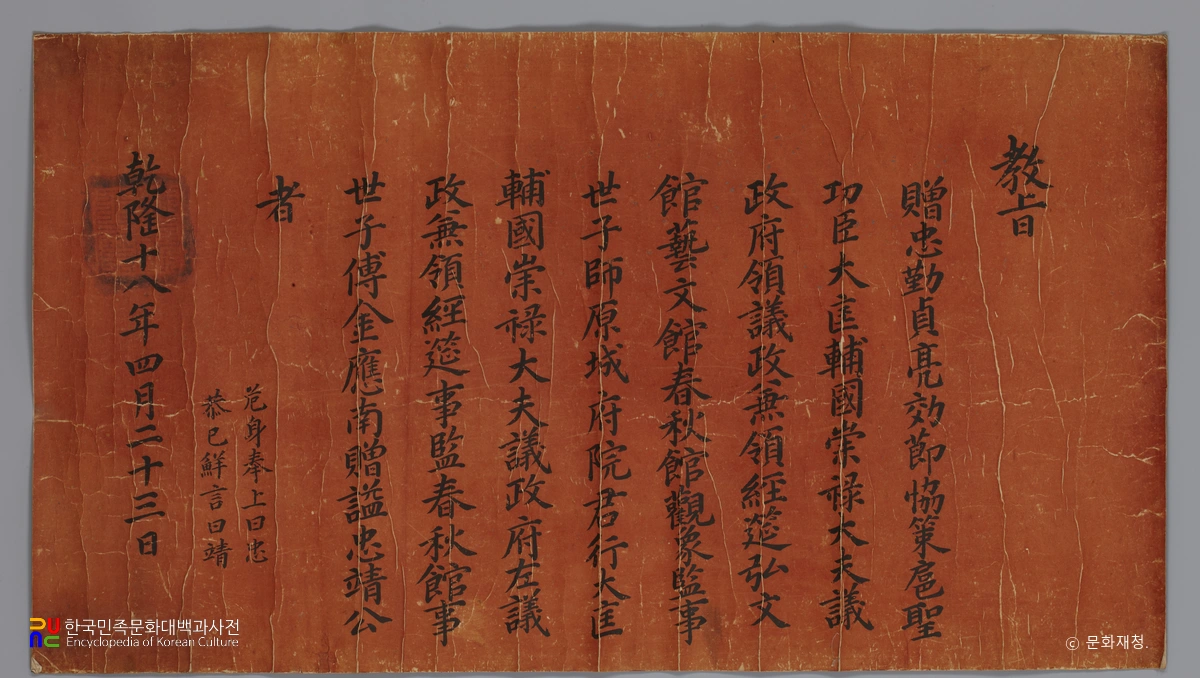 教旨
贈忠勤貞亮效節恊策扈聖
功臣大匡輔國崇祿大夫議
政府領議政兼領經筵弘文
館藝文館春秋館觀象監事
世子師原城府院君行大匡
輔國崇祿大夫議政府左議
政兼領經筵事監春秋館事
世子傅金應南贈謚忠靖公
者
危身奉上曰忠
恭己鮮言曰靖
乾隆十八年四月二十三日
한국민족문화대백과사전
Encyclopedia of Korean Culture
ⓒ 문화재청.